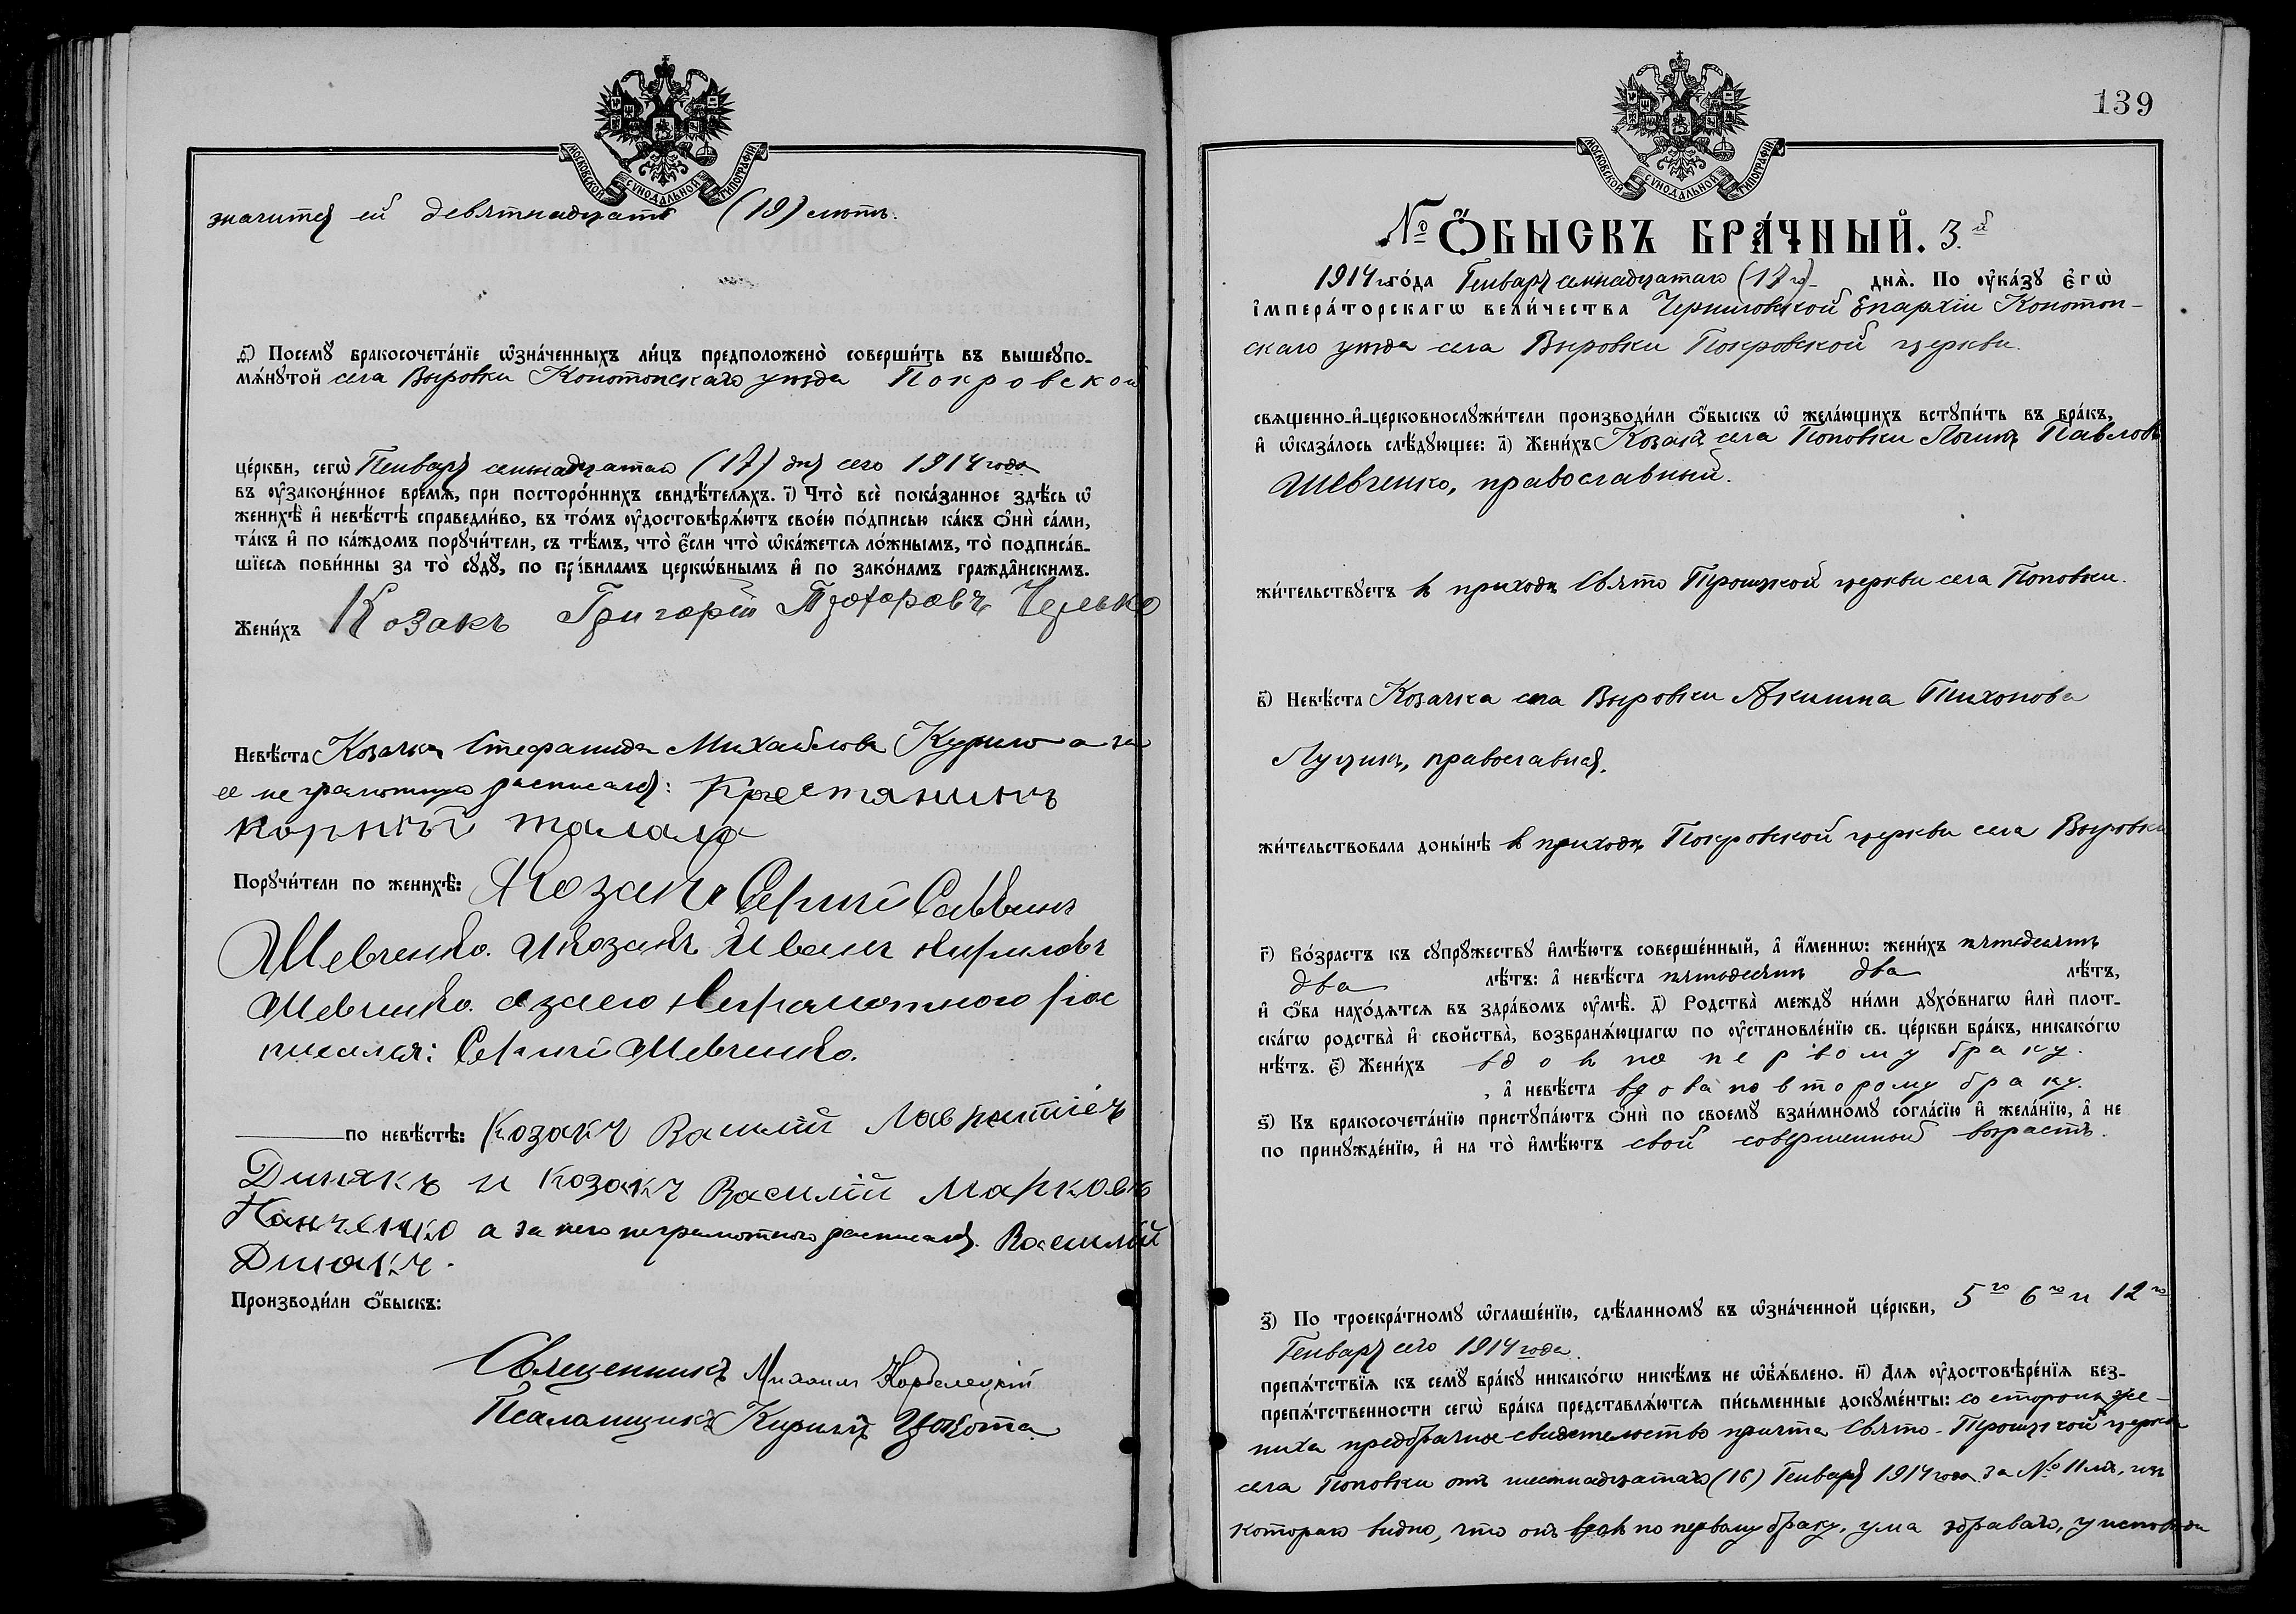 МОСКОВСКОЙ СѴНОДАЛЬНОЙ ТИПОГРАФІИ
значится ей девятнадцать (19) лѣтъ.
д҃) Посемꙋ бракосочета́нїе ѡ҆зна́ченныхъ ли́цъ предположено̀ соверши́ть въ вышеꙋпо-
мѧ́нꙋтой села Выровки Конотопскаго уѣзда Покровской
це́ркви, сегѡ̀ Генваря семнадцатаго (17) дня сего 1914 года
въ ᲂу҆законе́нное вре́мѧ, при посторо́ннихъ свидѣ́телѧхъ. і҃) Что̀ всѐ пока́занное здѣ́сь ѡ҆
женихѣ̀ и҆ невѣ́стѣ справедли́во, въ то́мъ ᲂу҆достовѣрѧ́ютъ свое́ю по́дписью ка́къ ѻ҆нѝ са́ми,
та́къ и҆ по ка́ждомъ порꙋчи́тели, съ тѣ́мъ, что̀ є҆́сли что̀ ѡ҆ка́жетсѧ ло́жнымъ, то̀ подписа́в-
шїесѧ пови́нны за то̀ сꙋдꙋ̀, по пра́виламъ церкѡ́внымъ и҆ по зако́намъ гражда̑нскимъ.
Жени́хъ Козакъ Григорій Прохоровъ
Невѣ́ста Козачка Стефанида Михайлова Курило а за
ее неграмотную росписался: Крестянинъ
корній Талала
Порꙋчи́тели по женихѣ̀: Козакъ Сергій Саввинъ
Шевченко. И козакъ Иванъ Кириловъ
Шевченко. а за его Неграмотного рос
писался: Сергій Шевченко.
по невѣ́стѣ: Козакъ Василій Лаврентіев
Динякъ и козакъ Василій Марковъ
Панченко а за него неграмотного росписался. Василій
Динякъ.
Производи́ли ѻ҆́быскъ:
Священникъ Михаилъ Корделецкій
Псаломщикъ Кириллъ Цикота
139
МОСКОВСКОЙ СѴНОДАЛЬНОЙ ТИПОГРАФІИ
№ Ѻ҆́БЫСКЪ БРА́ЧНЫЙ. 3.й
1914 го го́да Генваря семнадцатаго (17 го) днѧ̀. По ᲂу҆ка́зꙋ є҆гѡ̀
і҆мпера́торскагѡ вели́чества Черниговской Епархіи Конотоп-
скаго уѣзда села Выровки Покровской церкви.
свѧщенно-и҆-церковнослꙋжи́тели производи́ли ѻ҆́быскъ ѡ҆ жела́ющихъ встꙋпи́ть въ бра́къ,
и҆ ѡ҆каза́лось слѣ́дꙋющее: а҃) Жени́хъ Козакъ села Поповки Логинъ Павловъ
Шевченко, православный.
жи́тельствꙋетъ въ приходѣ Свято Троицкой церкви села Поповки.
в҃) Невѣ́ста Козачка села Выровки Акилина Тихонова
Луцикъ, православная.
жи́тельствовала доны́нѣ въ приходѣ Покровской церкви села Выровки
г҃) Во́зрастъ къ сꙋпрꙋ́жествꙋ и҆мѣ́ютъ соверше́нный, а҆ и҆́меннѡ: жени́хъ пятьдесятъ
два лѣ́тъ: а҆ невѣ́ста пятьдесятъ два лѣ́тъ,
и҆ ѻ҆́ба нахо́дѧтсѧ въ здра́вомъ ᲂу҆мѣ̀. д҃) Родства̀ междꙋ̀ ни́ми дꙋхо́внагѡ и҆лѝ плот-
ска́гѡ родства̀ и҆ сво́йства̀, возбранѧ́ющагѡ по ᲂу҆становле́нїю св. це́ркви бра́къ, никако́гѡ
нѣ́тъ. є҃) Жени́хъ вдовъ по первому браку.
, а҆ невѣ́ста вдова по второму браку.
ѕ҃) Къ бракосочета́нїю пристꙋпа́ютъ ѻ҆нѝ по своемꙋ̀ взаи́мномꙋ согла́сїю и҆ жела́нїю, а҆ не
по принꙋжде́нїю, и҆ на то̀ и҆мѣ́ютъ свой совершенный возрастъ.
з҃) По троекра́тномꙋ ѡ҆глаше́нїю, сдѣ́ланномꙋ въ ѡ҆зна́ченной це́ркви, 5 го 6 го и 12 го
Генваря сего 1914 года.
препѧ́тствїѧ къ семꙋ̀ бра́кꙋ никако́гѡ никѣ́мъ не ѡ҆б̾ѧ́влено. и҃) Длѧ ᲂу҆достовѣре́нїѧ без-
препѧ́тственности сегѡ̀ бра́ка представлѧ́ютсѧ пи́сьменные докꙋме́нты: со стороны же-
ниха предбрачное свидетельство причта Свято-Троицкой церкви
села Поповки отъ шестнадцатаго (16) Генваря 1914 года за № 11 мъ, изъ
котораго видно, что онъ вдовъ по первому браку, ума здраваго, у исповѣди